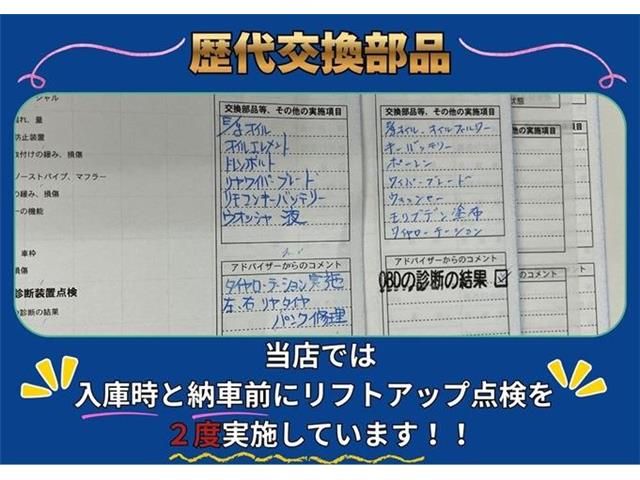 歴代交換部品
シャル
漏れ、量
防止装置
取付けの緩み、損傷
ノーストパイプ、マフラー
の緩み、損傷
ーの機能
車枠
損傷
診断装置点検
の診断の結果
交換部品等、その他の実施項目
オイル
オイルエレメント
ドレンボルト
リヤワイパーブレード
リモコンキーバッテリー
ウオッシャ液
アドバイザーからのコメント
タイヤローテーション実施
左、右リヤタイヤ
パンク修理
交換部品等、その他の実施項目
オイル、オイルフィルター
キーバッテリー
ワイパーブレード
ウォッシャー
モリブデン塗布
タイヤローテーション
アドバイザーからのコメント
OBDの診断の結果 ☑
状態
の実施項目
のコメント
当店では
入庫時と納車前にリフトアップ点検を
2度実施しています！！